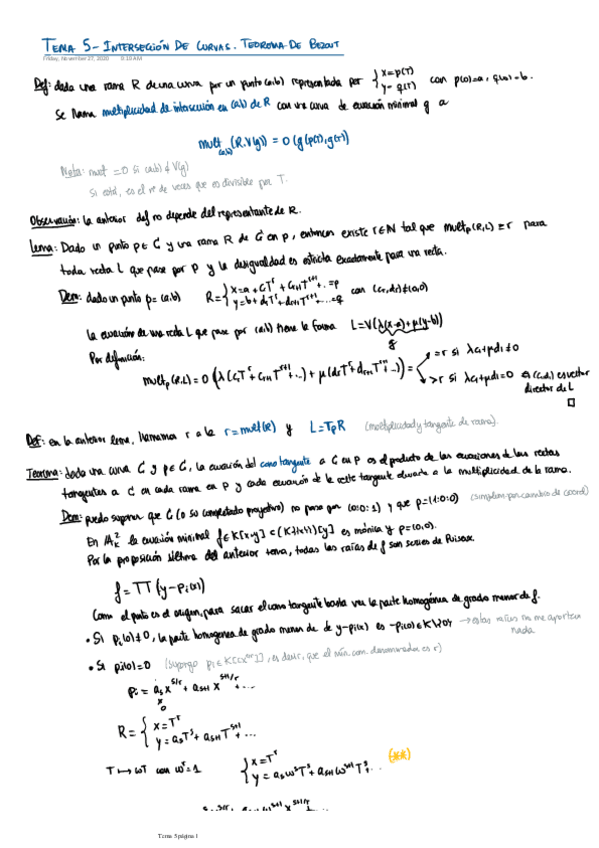 TEMA 5- INTERSECCIÓN DE CURVAS. TEOREMA DE BEZOUT
Friday, November 27, 2020 9:19 AM
Def: dada una rama R de una curva por un punto (a,b) representada por { x=p(T) y=q(T) con p(0)=a, q(0)=b.
Se llama multiplicidad de intersección en (a,b) de R con una curva de ecuación minimal g a
mult(a,b) (R.V(g)) = O(g(p(T),q(T)))
Nota: mult =0 si (a,b)∉V(g)
Si está, es el nº de veces que es divisible por T.
Observación: la anterior def no depende del representante de R.
Lema: Dado un punto p∈C y una rama R de C en p, entonces existe r∈N tal que mult_p(R,L) = r para
toda recta L que pase por p y la desigualdad es estricta exactamente para una recta.
Dem: dado un punto p=(a,b) R= { x=a+c_rT^r+c_{r+1}T^{r+1}+...=p y=b+d_rT^r+d_{r+1}T^{r+1}+...=q con (c_r,d_r)≠(0,0)
la ecuación de una recta L que pase por (a,b) tiene la forma L=V(λ(x-a)+μ(y-b))
g
Por definición:
mult_p(R,L)=O(λ(c_rT^r+c_{r+1}T^{r+1}+...)+μ(d_rT^r+d_{r+1}T^{r+1}+...))= =r si λc_r+μd_r≠0
>r si λc_r+μd_r=0 (c_r,d_r) es vector
director de L
□
Def: en la anterior lema, llamamos r a la r=mult(R) y L=T_pR (multiplicidad y tangente de rama).
Teorema: dada una curva C y p∈C, la ecuación del cono tangente a C en p es el producto de las ecuaciones de las rectas
tangentes a C en cada rama en p y cada ecuación de la recta tangente elevada a la multiplicidad de la rama.
Dem: puedo suponer que C (o su completado proyectivo) no pasa por (0:0:1) y que p=(1:0:0) (simplem. por cambio de coord)
En A²_K la ecuación minimal f∈K[x,y]⊂(K[[x]])[y] es mónica y p=(0,0).
Por la proposición última del anterior tema, todas las raíces de f son series de Puiseux.
f=∏(y-p_i(x))
Como el punto es el origen, para sacar el cono tangente basta ver la parte homogénea de grado menor de f.
• Si p_i(0)≠0, la parte homogenea de grado menor de y-p_i(x) es -p_i(0)∈K\{0} → estas raíces no me aportan
nada
• Si p_i(0)=0 (supongo p_i∈K[[x^{1/r}]], es decir, que el mín. com. denominador es r)
p_i = a_s x^{s/r} + a_{s+1} x^{s+1/r}+...
≠
0
R= { x=T^r y=a_sT^s+a_{s+1}T^{s+1}+...
T↦ωT con ω^r=1 { x=T^r y=a_sω^sT^s+a_{s+1}ω^{s+1}T^{s+1}+... (**)
Tema 5 página 1